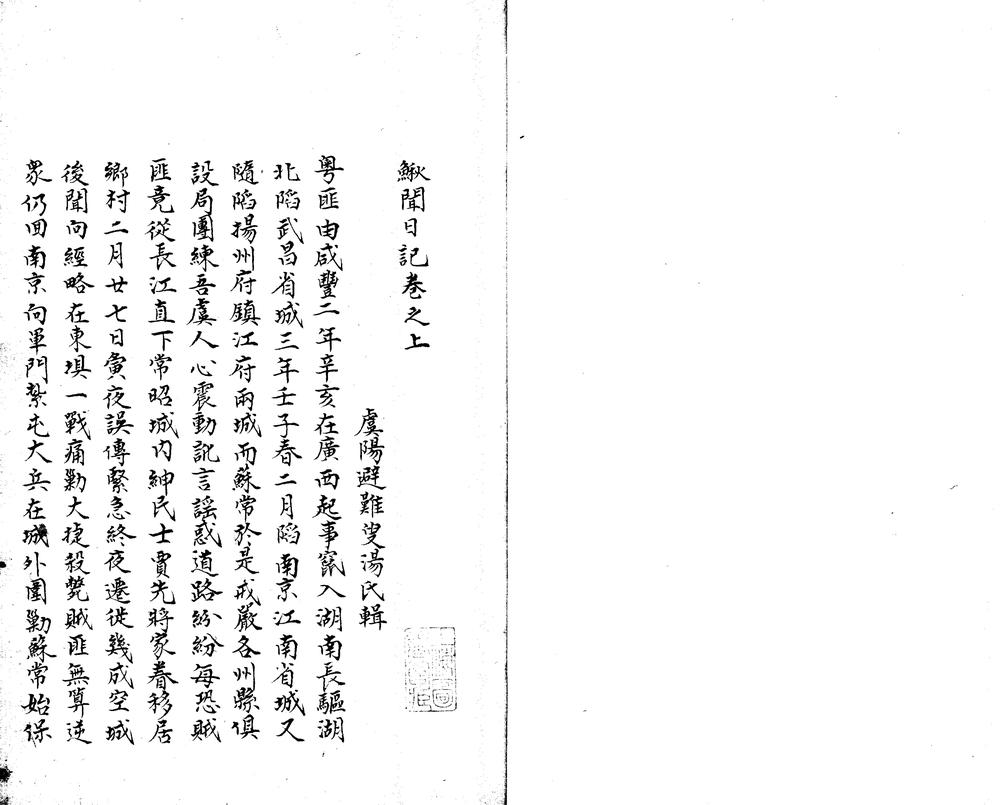 鰍聞日記卷之上
虞陽避難叟湯氏輯
粤匪由咸豐二年辛亥在廣西起事竄入湖南長驅湖
北陷武昌省城三年壬子春二月陷南京江南省城又
隨陷揚州府鎮江府兩城而蘇常於是戒嚴各州縣俱
設局團練吾虞人心震動訛言謠惑道路紛紛每恐賊
匪竟從長江直下常昭城内紳民士賈先將家眷移居
鄉村二月廿七日夤夜誤傳緊急終夜遷徙幾成空城
後聞向經略在東垻一戰痛勦大捷殺斃賊匪無算逆
衆仍回南京向軍門紮屯大兵在城外圍勦蘇常始保